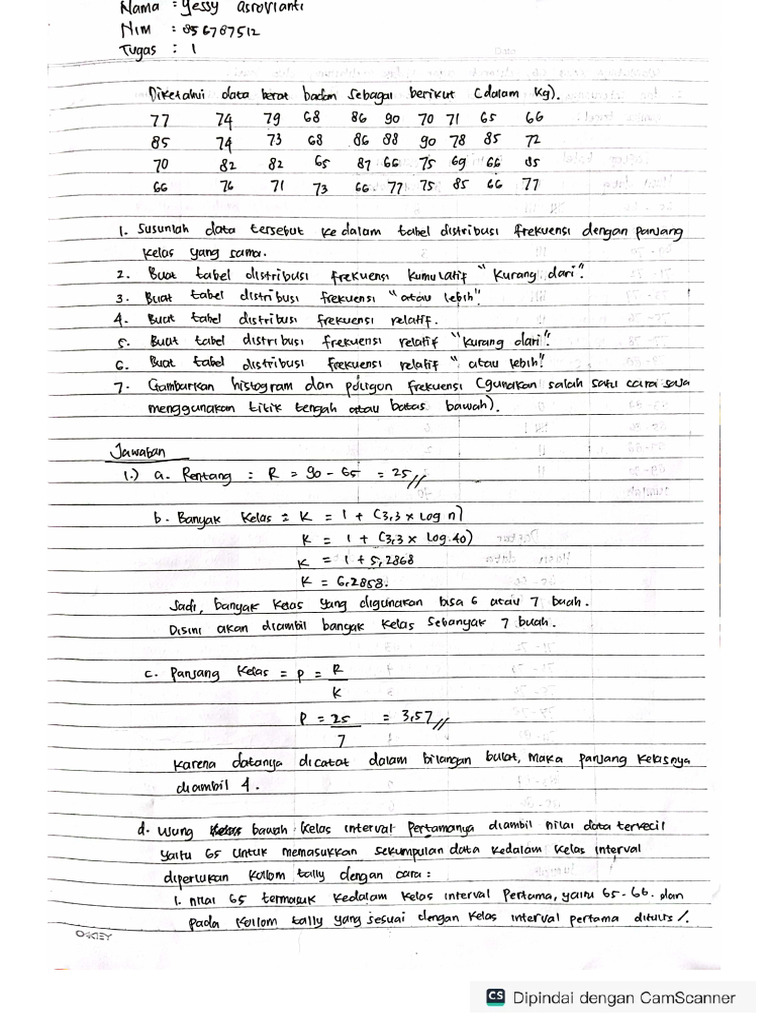 Nama : Yessy Asrovianti
Nim : 856787512
Tugas : 1
Diketahui data berat badan sebagai berikut (dalam kg).
77 74 79 68 86 90 70 71 65 66
85 74 73 68 86 88 90 78 85 72
70 82 82 65 87 66 75 69 66 85
66 76 71 73 66 77 75 85 66 77
1. Susunlah data tersebut ke dalam tabel distribusi frekuensi dengan panjang
kelas yang sama.
2. Buat tabel distribusi frekuensi kumulatif "kurang dari".
3. Buat tabel distribusi frekuensi "atau lebih".
4. Buat tabel distribusi frekuensi relatif.
5. Buat tabel distribusi frekuensi relatif "kurang dari".
6. Buat tabel distribusi frekuensi relatif "atau lebih".
7. Gambarkan histogram dan poligon frekuensi (gunakan salah satu cara saja
menggunakan titik tengah atau batas bawah).
Jawaban
1.) a. Rentang : R = 90 - 65 = 25 //
b. Banyak kelas = K = 1 + (3,3 x Log n)
K = 1 + (3,3 x Log 40)
K = 1 + 5,2868
K = 6,2858.
Jadi, banyak kelas yang digunakan bisa 6 atau 7 buah.
Disini akan diambil banyak kelas sebanyak 7 buah.
c. Panjang kelas = P = R
K
P = 25 = 3,57 //
7
Karena datanya dicatat dalam bilangan bulat, maka panjang kelasnya
diambil 4.
d. Ujung bawah kelas interval pertamanya diambil nilai data terkecil
yaitu 65 untuk memasukkan sekumpulan data kedalam kelas interval
diperlukan kollom tally dengan cara :
1. nilai 65 termasuk kedalam kelas interval pertama, yaitu 65-66. dan
pada kollom tally yang sesuai dengan kelas interval pertama ditulis /.
OKEY
CS Dipindai dengan CamScanner